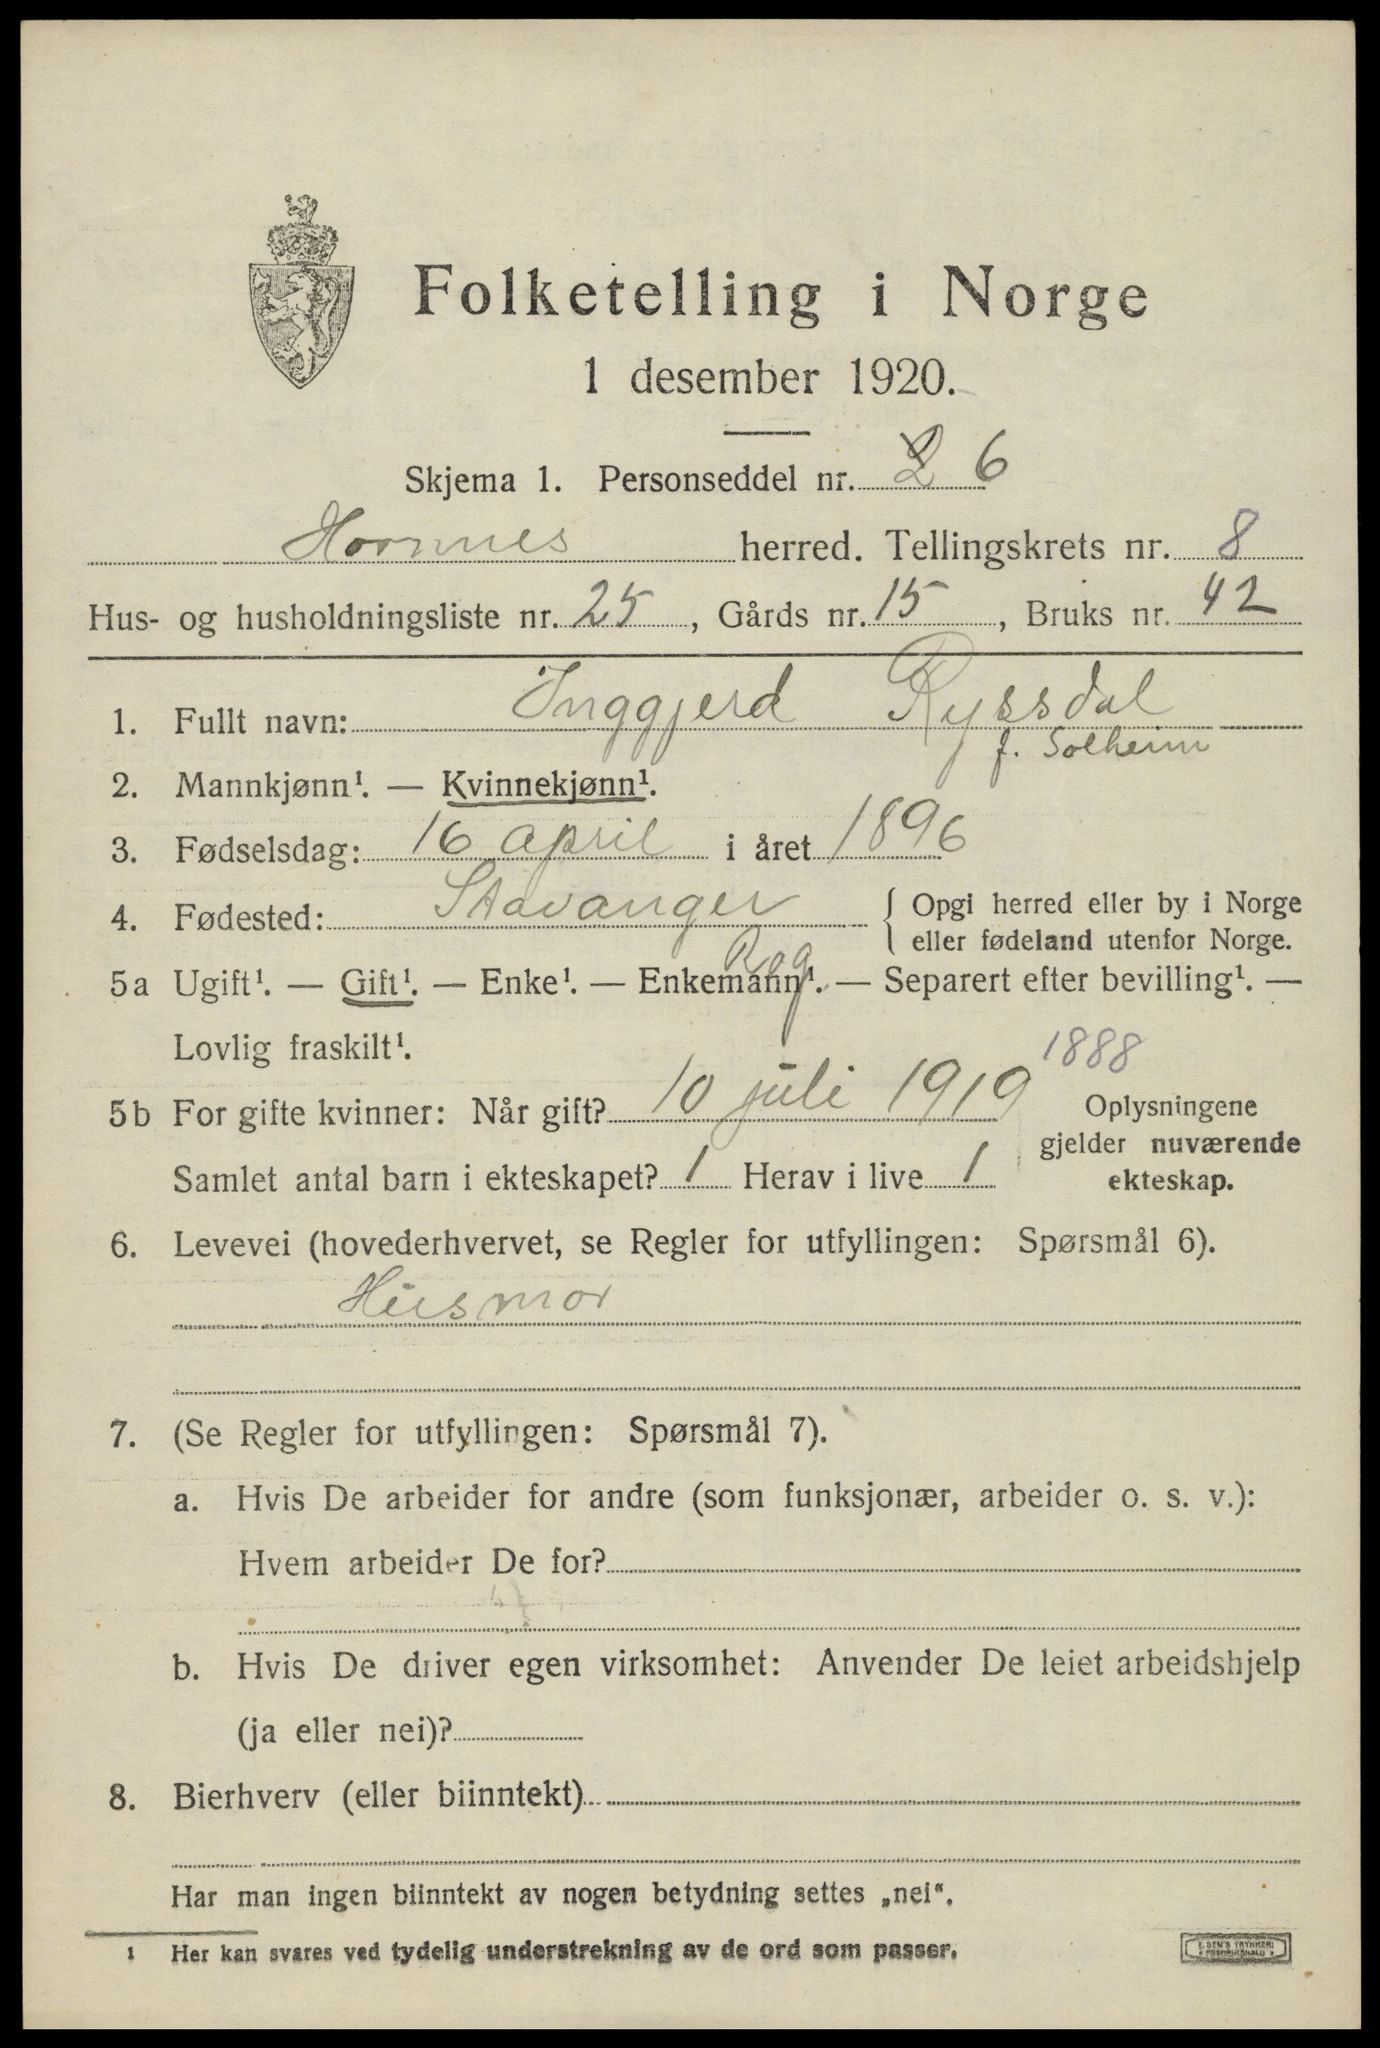 Folketelling i Norge
1 desember 1920.
Skjema 1. Personseddel nr. 2 6
Hornnes herred. Tellingskrets nr. 8
Hus- og husholdningsliste nr. 25, Gårds nr. 15, Bruks nr. 42
1. Fullt navn: Inggjerd Ryssdal
f. Solheim
2. Mannkjønn¹. — Kvinnekjønn¹.
3. Fødselsdag: 16 april i året 1896
4. Fødested: Stavanger { Opgi herred eller by i Norge
eller fødeland utenfor Norge.
Rog
5a Ugift¹. — Gift¹. — Enke¹. — Enkemann¹. — Separert efter bevilling¹. —
Lovlig fraskilt¹.
1888
5b For gifte kvinner: Når gift? 10 juli 1919 Oplysningene
gjelder nuværende
Samlet antal barn i ekteskapet? 1 Herav i live 1 ekteskap.
6. Levevei (hovederhvervet, se Regler for utfyllingen: Spørsmål 6).
Husmor
7. (Se Regler for utfyllingen: Spørsmål 7).
a. Hvis De arbeider for andre (som funksjonær, arbeider o. s. v.):
Hvem arbeider De for?
b. Hvis De driver egen virksomhet: Anvender De leiet arbeidshjelp
(ja eller nei)?
8. Bierhverv (eller biinntekt)
Har man ingen biinntekt av nogen betydning settes „nei“.
1 Her kan svares ved tydelig understrekning av de ord som passer.